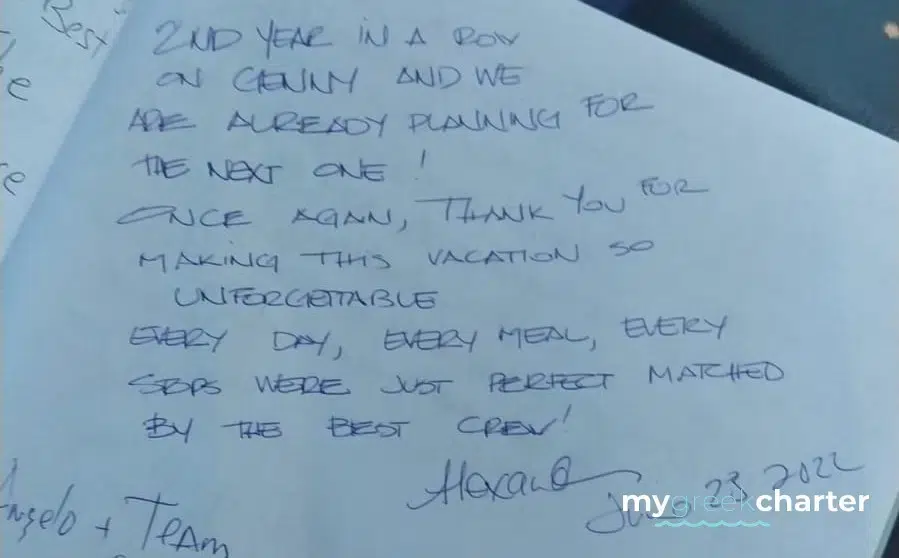 Best
e
e
2ND YEAR IN A ROW
ON GENNY AND WE
ARE ALREADY PLANNING FOR
THE NEXT ONE !
ONCE AGAIN, THANK YOU FOR
MAKING THIS VACATION SO
UNFORGETTABLE
EVERY DAY, EVERY MEAL, EVERY
STOPS WERE JUST PERFECT MATCHED
BY THE BEST CREW!
23, 2022
Angelo + TEAM
mygreekcharter